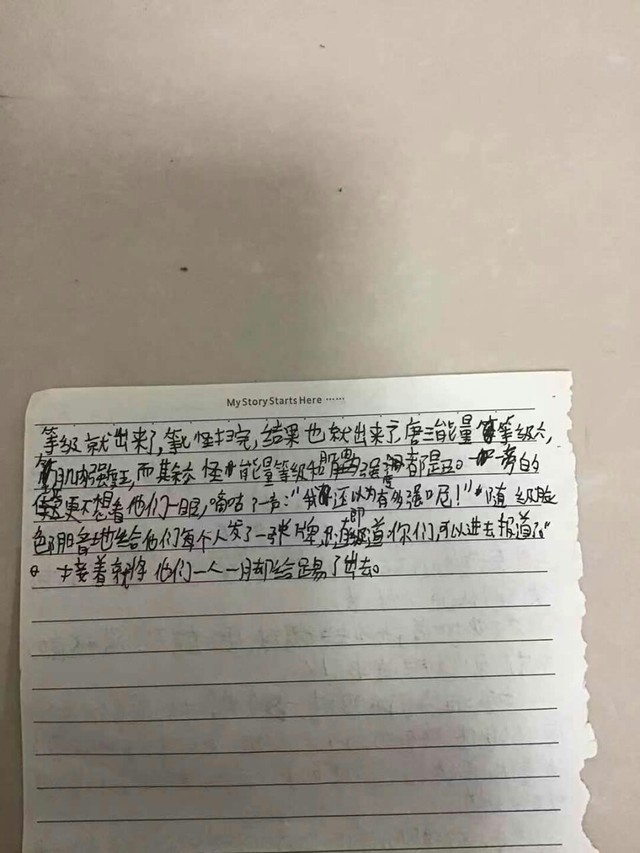 My Story Starts Here ······
等级就出来了,等七怪扫完,结果也就出来了,唐三能量等级六,
肌肉强五,而其余六怪能量等级和肌肉强度都是五。一旁的
更不想看他们一眼,嘀咕了一声:“我还以为有多强呢!”随
地给他们每个人发了一张牌,道你们可以进去报道了”
接着就将他们一人一脚给踢了出去。